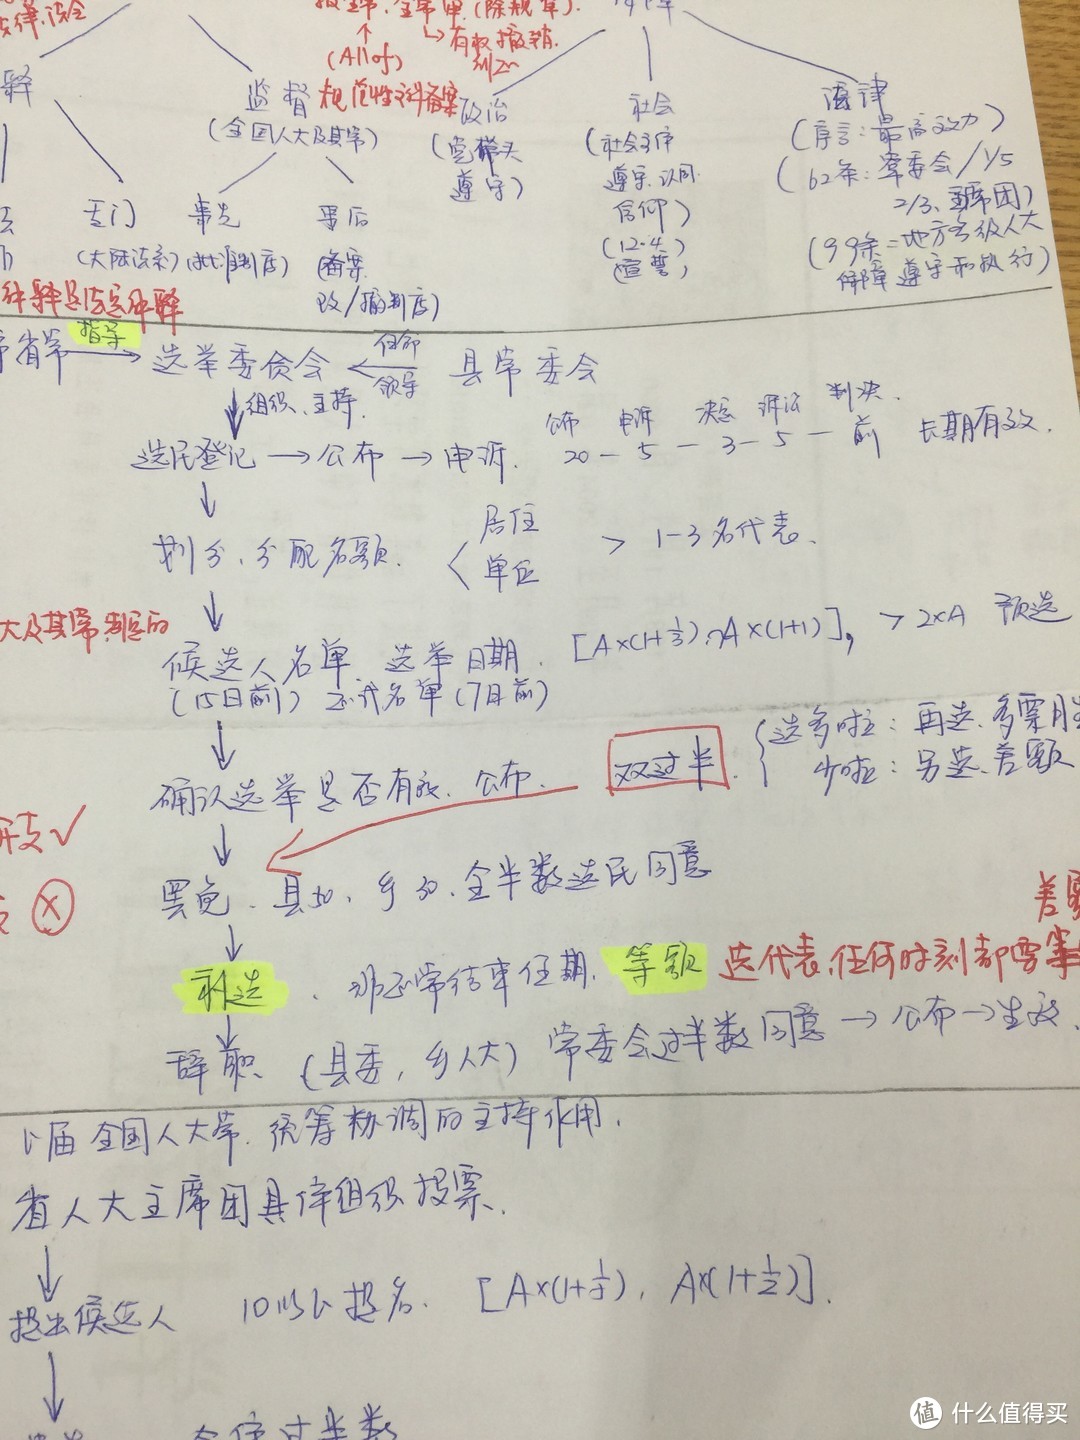 (All of)
有权撤销
释 监督 规范性文件备案 政治 社会 法律
(全国人大及其常) (党带头 遵守) (社会主体 遵守、认同 信仰) (序言：最高效力)
(62条：常委会/1/5
2/3、主席团)
专门 事先 事后
(大陆法系) (批准制度) (备案 改/撤制度)
(12.4) (宣誓)
(99条=地方各级人大
保障遵守和执行)
指导 → 选举委员会 ← 任命 领导 县常委会
↓组织、主持.
公布 申诉 决定 诉讼 判决.
选民登记 → 公布 → 申诉. 20 - 5 - 3 - 5 - 前 长期有效.
划分、分配名额. < 居住 单位 > 1-3名代表.
大及其常,制定的
候选人名单、选举日期. [A×(1+1/3), A×(1+1)], >2×A 预选
(15日前) 正式名单(7日前)
确认选举是否有效、公布. 双过半. { 选多啦：再选、多票
少啦：另选、差额
罢免、县50、乡30、全半数选民同意
补选、 等额 选代表,任何时刻都要
辞职 (县委,乡人大) 常委会过半数同意→公布→生效.
上届全国人大常、统筹协调的主持作用.
省人大主席团具体组织投票.
提出候选人 10以上提名. [A×(1+1/5), A×(1+1/2)].
全体过半数
值 什么值得买